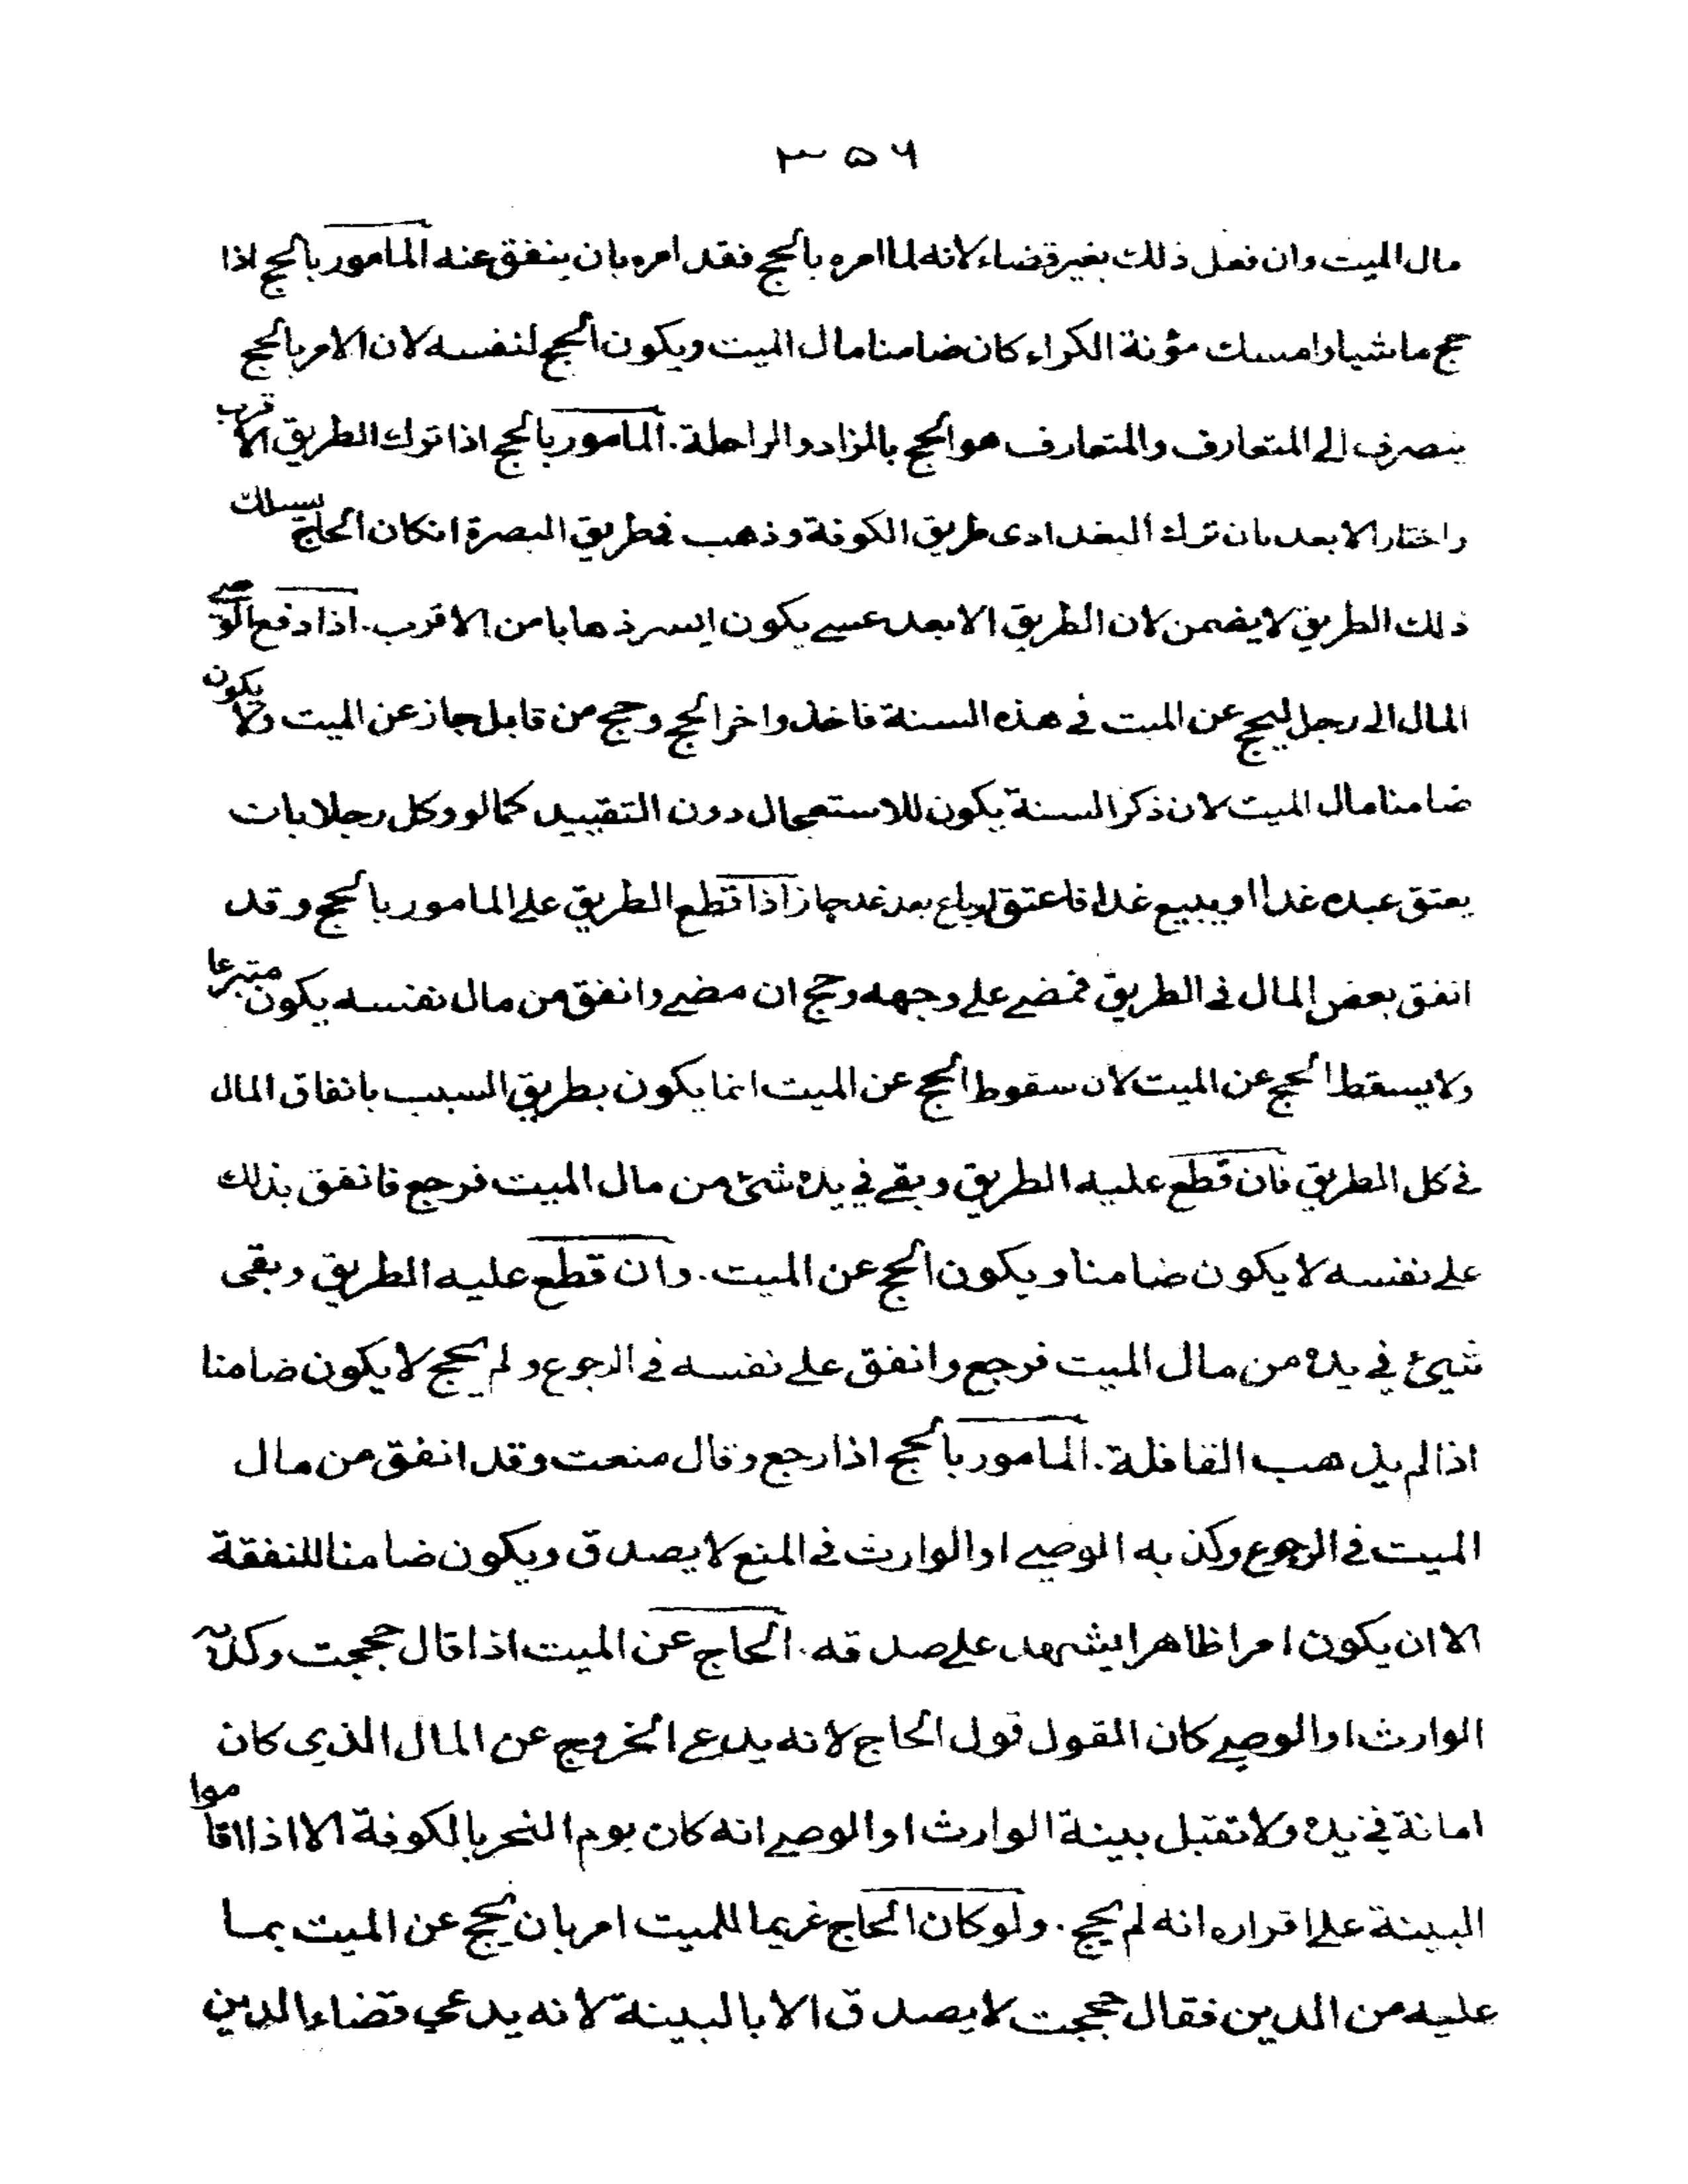 ۳۵۶
مال الميت وان فعل ذلك بغير قضاء لانه لما امره بالحج فقد امره بان ينفق عنه المامور بالحج اذا
حج ماشيا وامسك مؤنة الكراء كان ضامنا مال الميت ويكون الحج لنفسه لان الامر بالحج
ينصرف الى المتعارف والمتعارف هو الحج بالزاد والراحلة. المامور بالحج اذا ترك الطريق الاقرب
واختار الابعد بان ترك البغدادى طريق الكوفة وذهب فى طريق البصرة انكان الحاج يسلك
ذلك الطريق لا يضمن لان الطريق الابعد عسى يكون ايسر ذهابا من الاقرب. اذا دفع الوصى
المال الى رجل ليحج عن الميت فى هذه السنة فاخذ واخر الحج وحج من قابل جاز عن الميت ولا يكون
ضامنا مال الميت لان ذكر السنة يكون للاستعجال دون التقييد كما لو وكل رجلا بات
يعتق عبده غدا او يبيع غدا فاعتق او باع بعد غد جاز اذا قطع الطريق على المامور بالحج وقد
انفق بعض المال فى الطريق فمضى على وجهه وحج ان مضى وانفق من مال نفسه يكون متبرعا
ولا يسقط الحج عن الميت لان سقوط الحج عن الميت انما يكون بطريق السبب بانفاق المال
فى كل الطريق فان قطع عليه الطريق وبقى في يده شئ من مال الميت فرجع فانفق بذلك
على نفسه لا يكون ضامنا ويكون الحج عن الميت. وان قطع عليه الطريق وبقى
شيئ فى يده من مال الميت فرجع وانفق على نفسه فى الرجوع ولم يحج لا يكون ضامنا
اذا لم يذهب القافلة. المامور بالحج اذا رجع وقال منعت وقد انفق من مال
الميت فى الرجوع وكذبه الوصى او الوارث فى المنع لا يصدق ويكون ضامنا للنفقة
الا ان يكون امرا ظاهرا يشهد على صدقه. الحاج عن الميت اذا قال حججت وكذبه
الوارث او الوصى كان القول قول الحاج لانه يدعى الخروج عن المال الذي كان
امانة فى يده ولا تقبل بينة الوارث او الوصى انه كان يوم النحر بالكوفة الا اذا اقاموا
البينة على اقراره انه لم يحج. ولو كان الحاج غريما للميت امر بان يحج عن الميت بما
عليه من الدين فقال حججت لا يصدق الا بالبينة لانه يدعي قضاء الدين